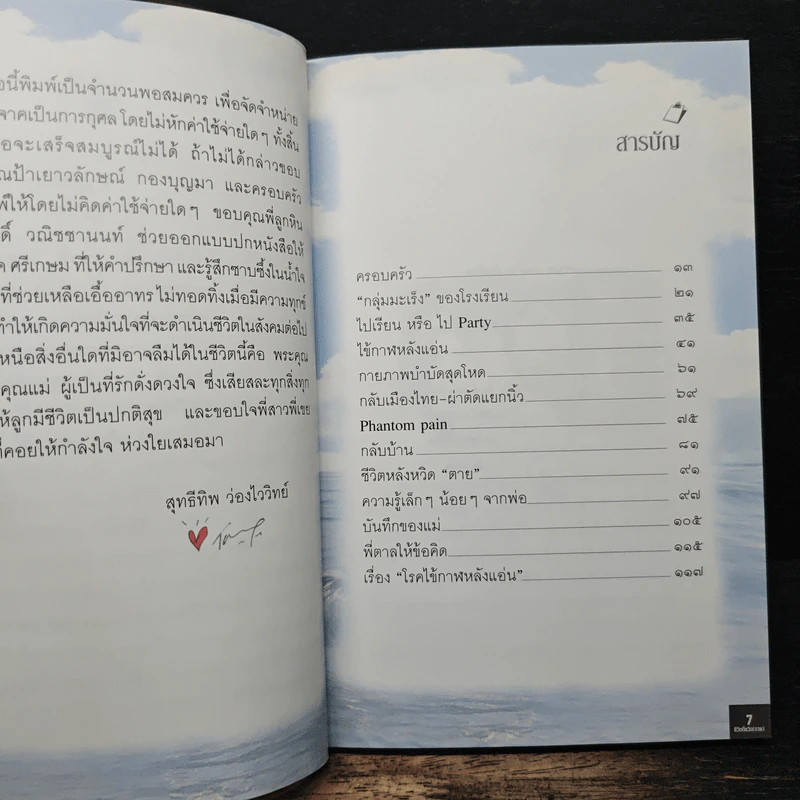 นี้พิมพ์เป็นจำนวนพอสมควร เพื่อจัดจำหน่าย
จาคเป็นการกุศล โดยไม่หักค่าใช้จ่ายใดๆ ทั้งสิ้น
จะเสร็จสมบูรณ์ไม่ได้ ถ้าไม่ได้กล่าวขอบ
ป้าเยาวลักษณ์ กองบุญมา และครอบครัว
ให้โดยไม่คิดค่าใช้จ่ายใดๆ ขอบคุณพี่ลูกหิน
วณิชชานนท์ ช่วยออกแบบปกหนังสือให้
ศรีเกษม ที่ให้คำปรึกษา และรู้สึกซาบซึ้งในน้ำใจ
ที่ช่วยเหลือเอื้ออาทร ไม่ทอดทิ้งเมื่อมีความทุกข์
ทำให้เกิดความมั่นใจที่จะดำเนินชีวิตในสังคมต่อไป
หนือสิ่งอื่นใดที่มิอาจลืมได้ในชีวิตนี้คือ พระคุณ
คุณแม่ ผู้เป็นที่รักดั่งดวงใจ ซึ่งเสียสละทุกสิ่งทุก
ห้ลูกมีชีวิตเป็นปกติสุข และขอบใจพี่สาวพี่เขย
ที่คอยให้กำลังใจ ห่วงใยเสมอมา
สุทธีทิพ ว่องไววิทย์
สารบัญ
ครอบครัว ๑๓
"กลุ่มมะเร็ง" ของโรงเรียน ๒๑
ไปเรียน หรือ ไป Party ๓๕
ไข้กาฬหลังแอ่น ๔๑
กายภาพบำบัดสุดโหด ๖๑
กลับเมืองไทย-ผ่าตัดแยกนิ้ว ๖๙
Phantom pain ๗๕
กลับบ้าน ๘๑
ชีวิตหลังหวิด "ตาย" ๙๑
ความรู้เล็กๆ น้อยๆ จากพ่อ ๙๗
บันทึกของแม่ ๑๐๕
พี่ตาลให้ข้อคิด ๑๑๕
เรื่อง "โรคไข้กาฬหลังแอ่น" ๑๑๗
7